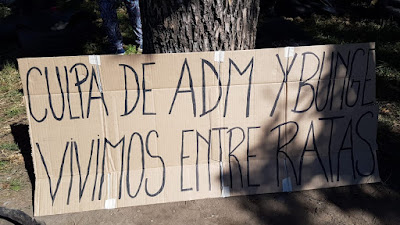 CULPA DE ADM Y BUNGE
VIVIMOS ENTRE RATAS